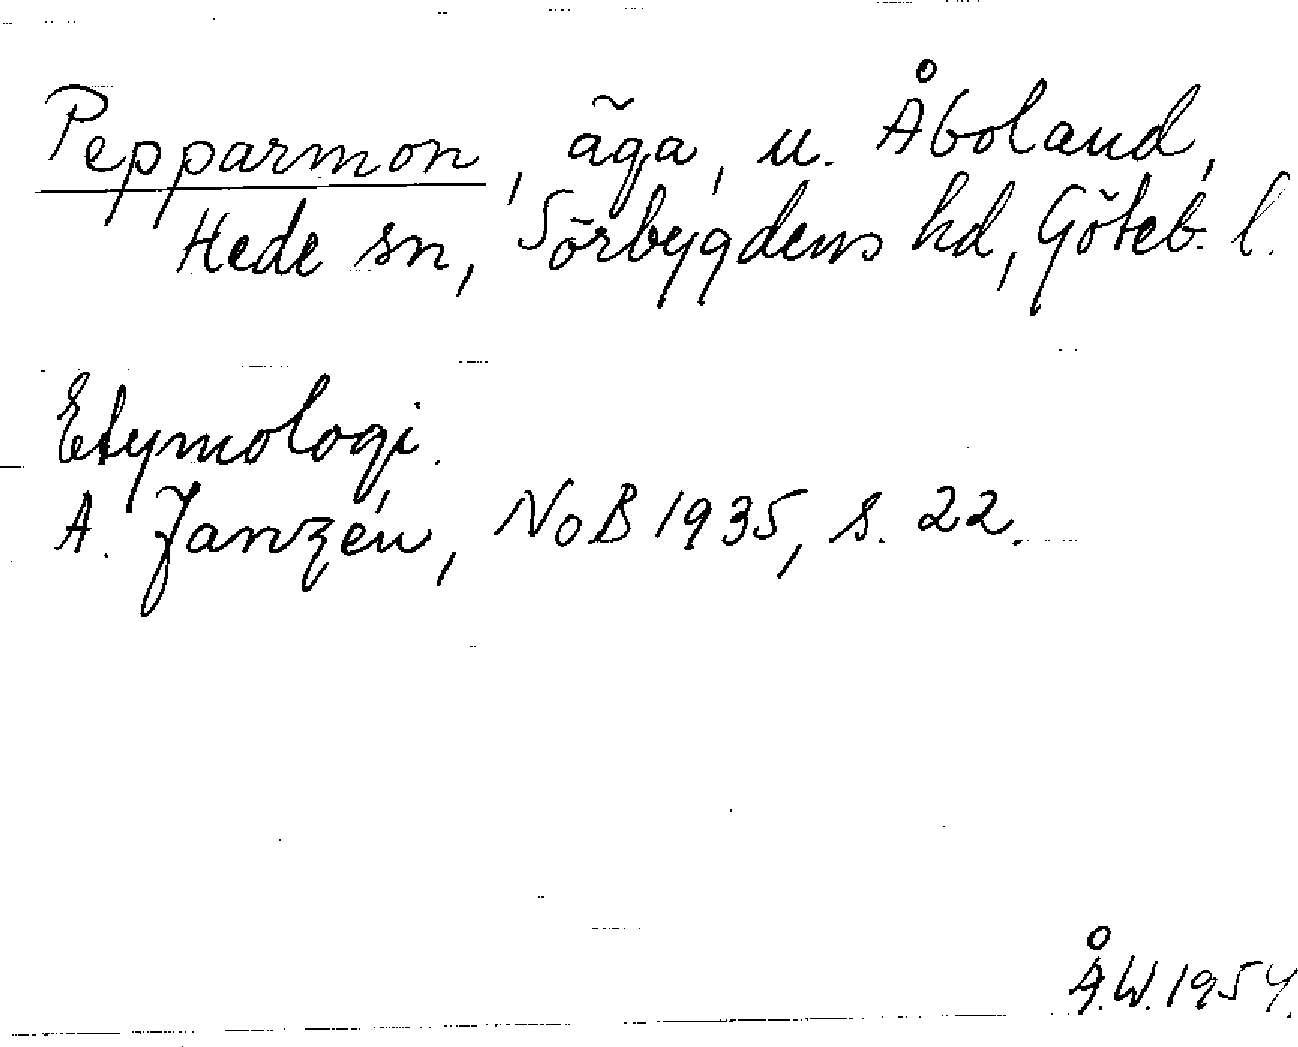 Pepparmon, äga, u. Åboland,
Hede sn, Sörbygdens hd, Göteb. l.
Etymologi.
A. Janzén, NoB 1935, s. 22.
Å.W. 1954.